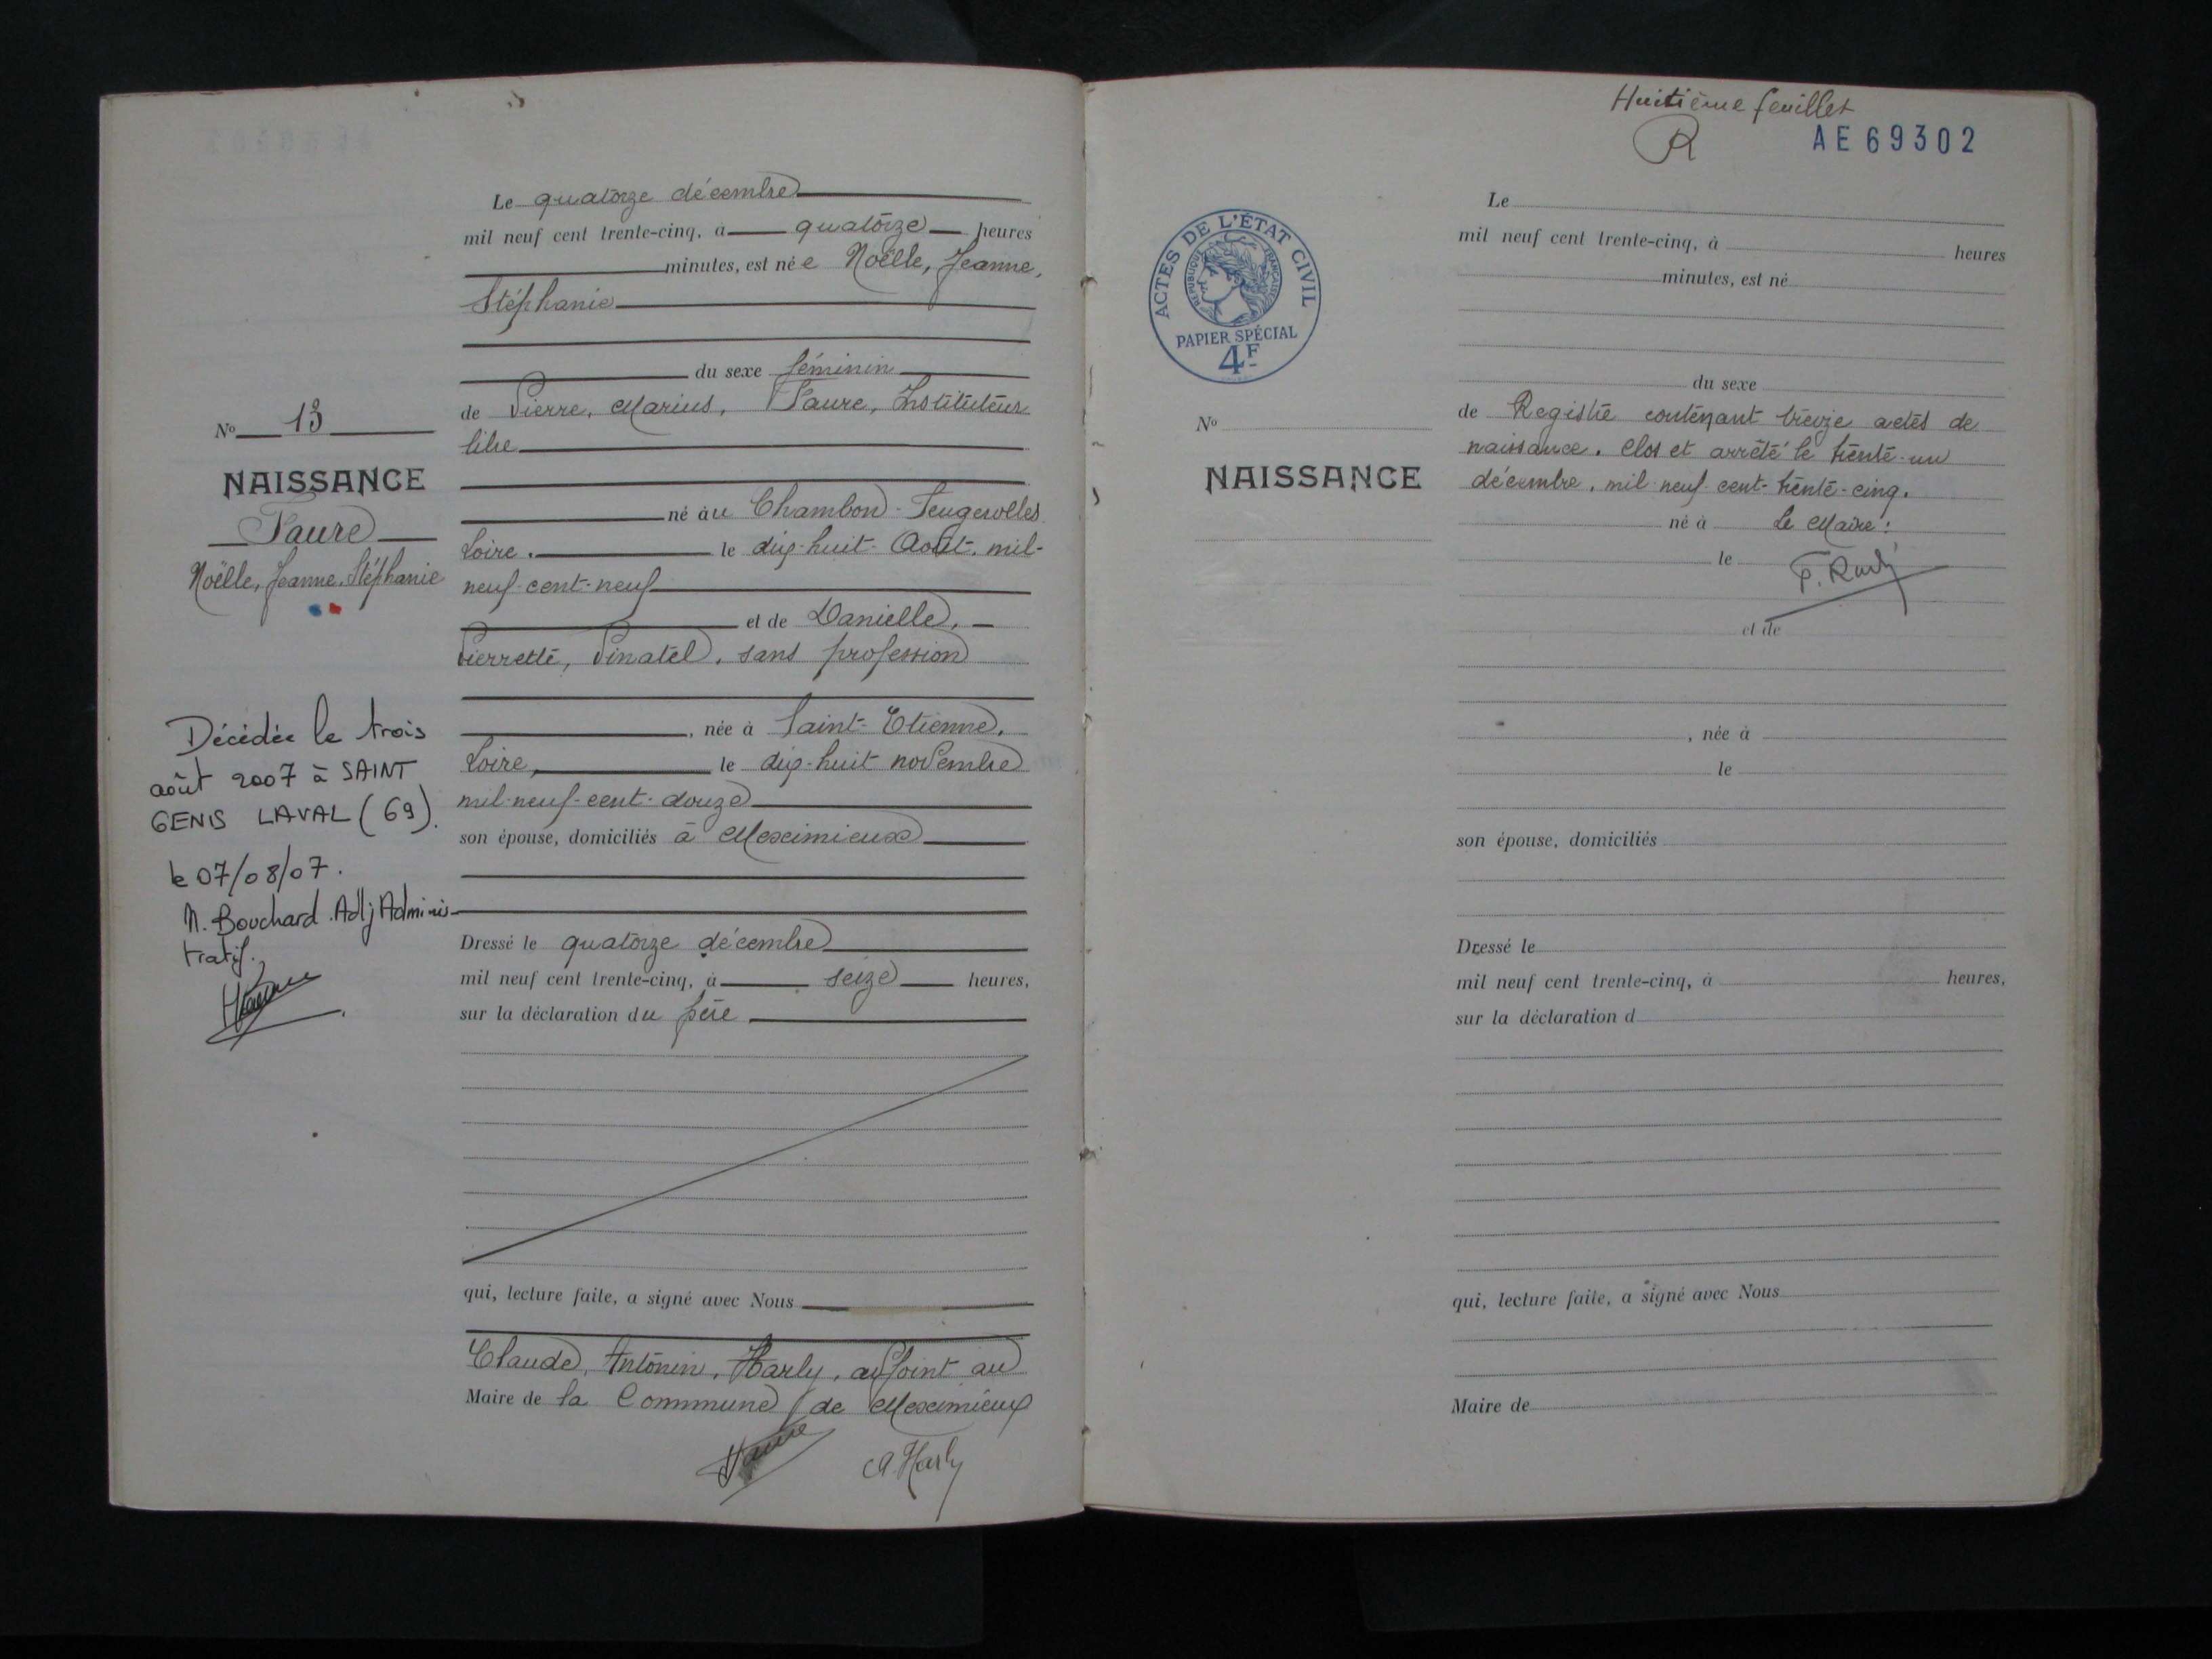 Le quatorze décembre
mil neuf cent trente-cinq, à quatorze heures
minutes, est née Noëlle, Jeanne,
Stéphanie
du sexe féminin
de Pierre, Marius, Faure, Instituteur
libre
né au Chambon-Feugerolles
Loire. le dix-huit Août. mil-
neuf-cent-neuf
et de Danielle,
Pierrette, Pinatel, sans profession
, née à Saint-Etienne,
Loire, le dix-huit novembre
mil-neuf-cent-douze
son épouse, domiciliés à Meximieux
Dressé le quatorze décembre
mil neuf cent trente-cinq, à seize heures,
sur la déclaration du père
qui, lecture faite, a signé avec Nous
Claude, Antonin, Harly, adjoint au
Maire de la Commune de Meximieux
Faure A. Harly
No 13
NAISSANCE
Faure
Noëlle, Jeanne, Stéphanie
Décédée le trois
août 2007 à SAINT
GENIS LAVAL (69).
le 07/08/07.
N. Bouchard. Adj Adminis-
tratif.
Huitième feuillet
R AE 69302
ACTES DE L'ÉTAT CIVIL
RÉPUBLIQUE FRANÇAISE
PAPIER SPÉCIAL
4F
No
NAISSANCE
Le
mil neuf cent trente-cinq, à heures
minutes, est né
du sexe
de Registre contenant treize actes de
naissance. Clos et arrêté le trente-un
décembre, mil-neuf-cent-trente-cinq.
né à Le Maire:
le
et de
, née à
le
son épouse, domiciliés
Dressé le
mil neuf cent trente-cinq, à heures,
sur la déclaration d
qui, lecture faite, a signé avec Nous
Maire de